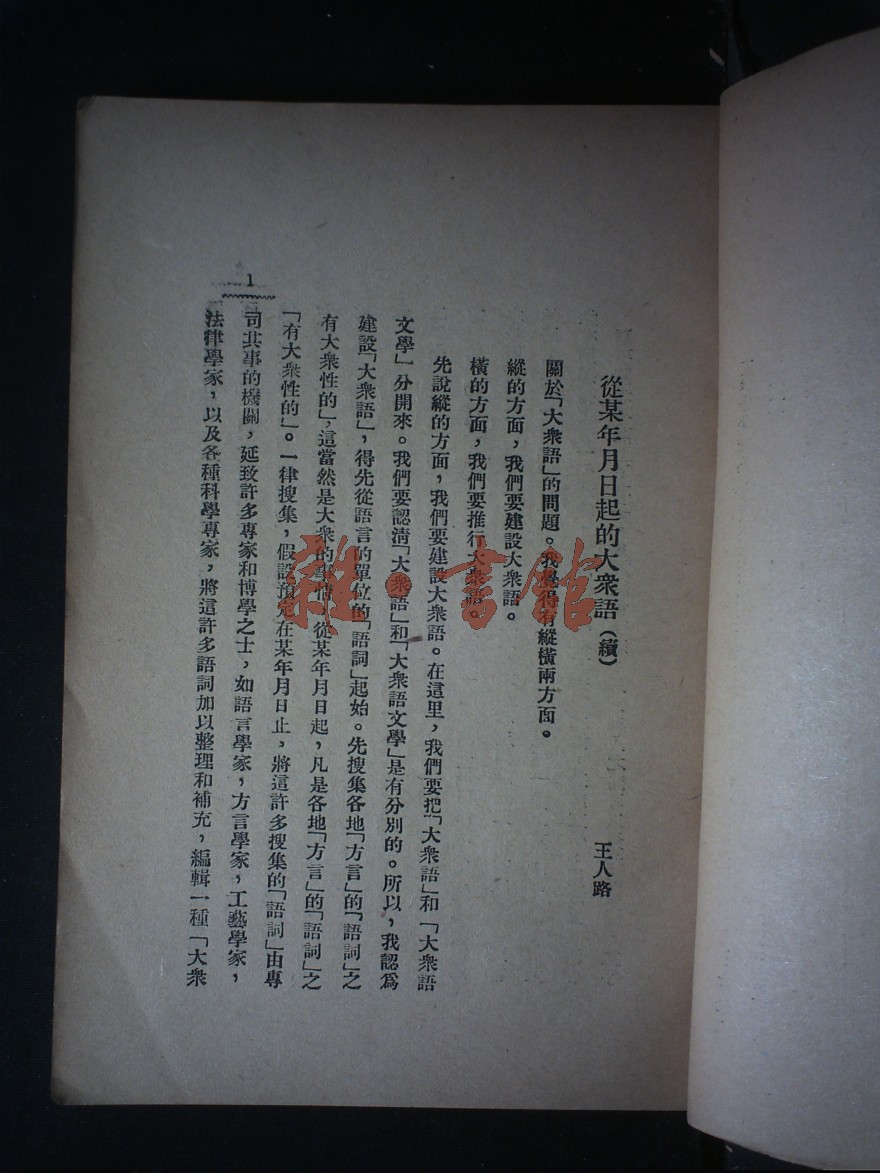 從某年月日起的大衆語(續)
王人路
關於「大衆語」的問題。我覺得有縱橫兩方面。
縱的方面，我們要建設大衆語。
橫的方面，我們要推行大衆語。
先說縱的方面，我們要建設大衆語。在這里，我們要把「大衆語」和「大衆語
文學」分開來。我們要認清「大衆語」和「大衆語文學」是有分別的。所以，我認爲
建設「大衆語」，得先從語言的單位的「語詞」起始。先搜集各地「方言」的「語詞」之
有大衆性的」，這當然是大衆的事情。從某年月日起，凡是各地「方言」的「語詞」之
「有大衆性的」。一律搜集，假設預定在某年月日止，將這許多搜集的「語詞」由專
司其事的機關，延致許多專家和博學之士，如語言學家，方言學家，工藝學家，
法律學家，以及各種科學專家，將這許多語詞加以整理和補充，編輯一種「大衆
1
雜·書館